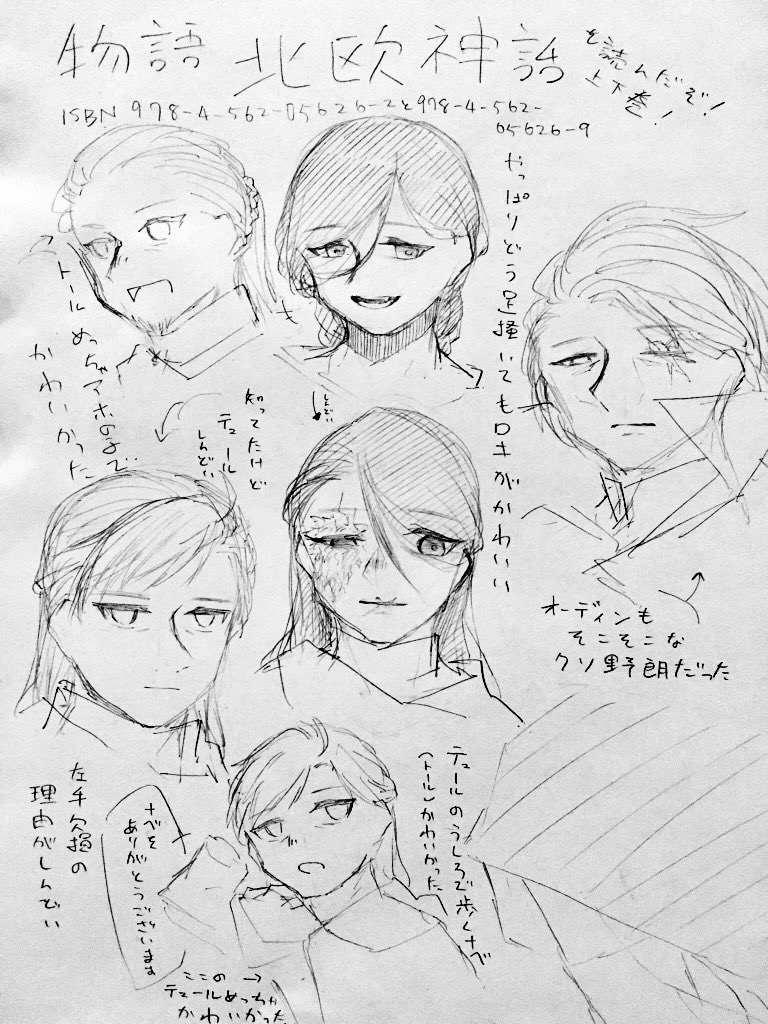 物語 北欧神話
を読んだぞ!
上下巻!
ISBN 978-4-562-05626-2と978-4-562-
05626-9
やっぱりどう足掻いてもロキがかわいい
トールめっちゃアホの子で
かわいかった
知ってたけど
テュール
しんどい
しんどい
オーディンも
そこそこな
クソ野朗だった
左手欠損の
理由がしんどい
ナベを
ありがとうございます
テュールのうしろで歩くナベ
(トール)かわいかった
ここの→
テュールめっちゃ
かわいかった